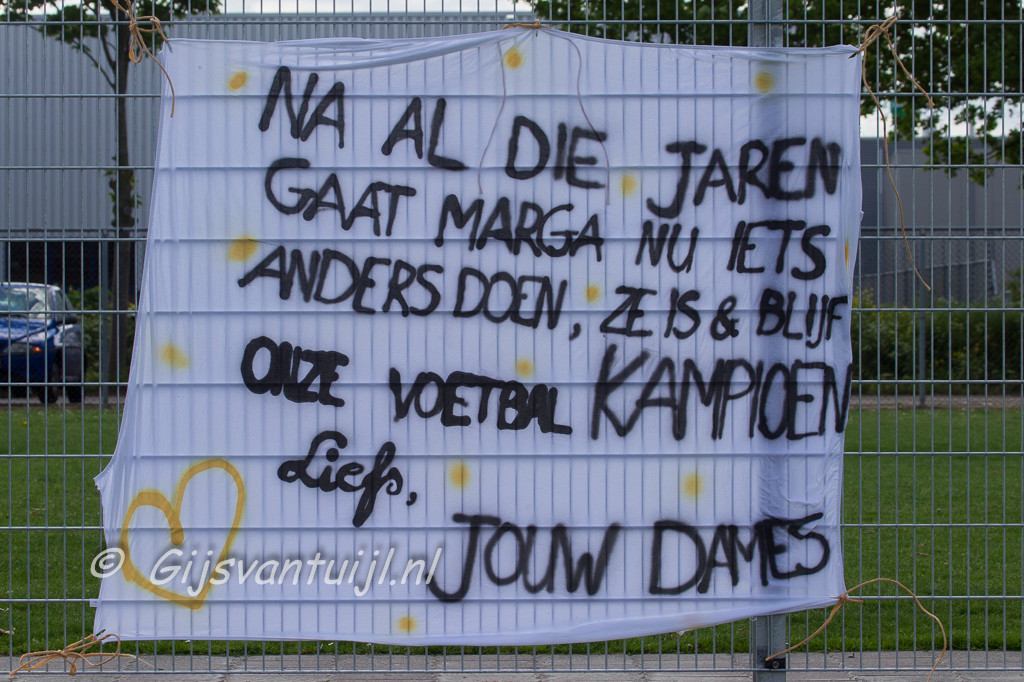 NA AL DIE JAREN
GAAT MARGA NU IETS
ANDERS DOEN, ZE IS & BLIJF
ONZE VOETBAL KAMPIOEN
Liefs,
JOUW DAMES
© Gijsvantuijl.nl